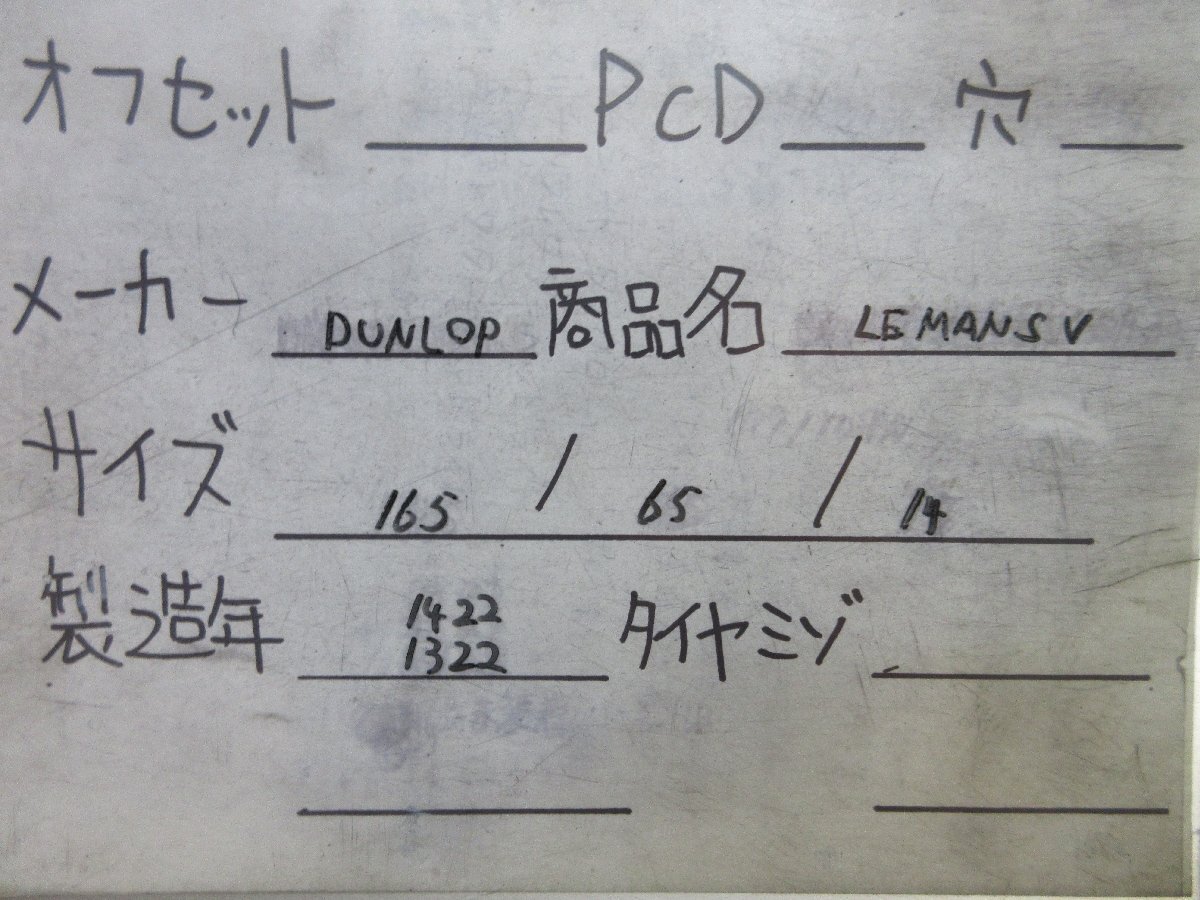 オフセット PCD 穴
メーカー DUNLOP 商品名 LEMANS V
サイズ 165 / 65 / 14
製造年 1422 タイヤミゾ
1322